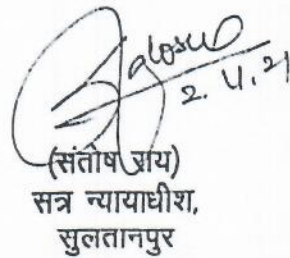 2.11.21
(संतोष राय)
सत्र न्यायाधीश,
सुलतानपुर